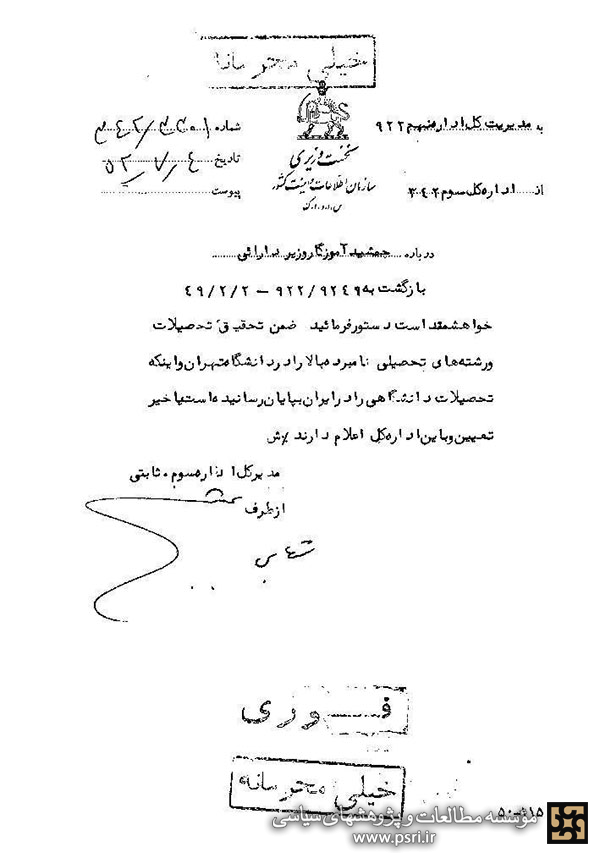 خیلی محرمانه
به مدیریت کل اداره نهم ۹۲۲
از اداره کل سوم ۳۴۲
نخست وزیری
سازمان اطلاعات و امنیت کشور
س.ا.و.ا.ک
شماره
تاریخ ۵۲/۷/۴
پیوست
درباره جمشید آموزگار وزیر دارائی
بازگشت به ۹۲۲/۹۲۴۹ – ۴۹/۲/۲
خواهشمند است دستور فرمائید ضمن تحقیق تحصیلات
و رشته‌های تحصیلی نامبرده بالا را در دانشگاه تهران و اینکه
تحصیلات دانشگاهی را در ایران بپایان رسانیده است یا خیر
تعیین و باین اداره کل اعلام دارند
مدیر کل اداره سوم . ثابتی
از طرف
فوری
خیلی محرمانه
موسسه مطالعات و پژوهشهای سیاسی
www.psri.ir